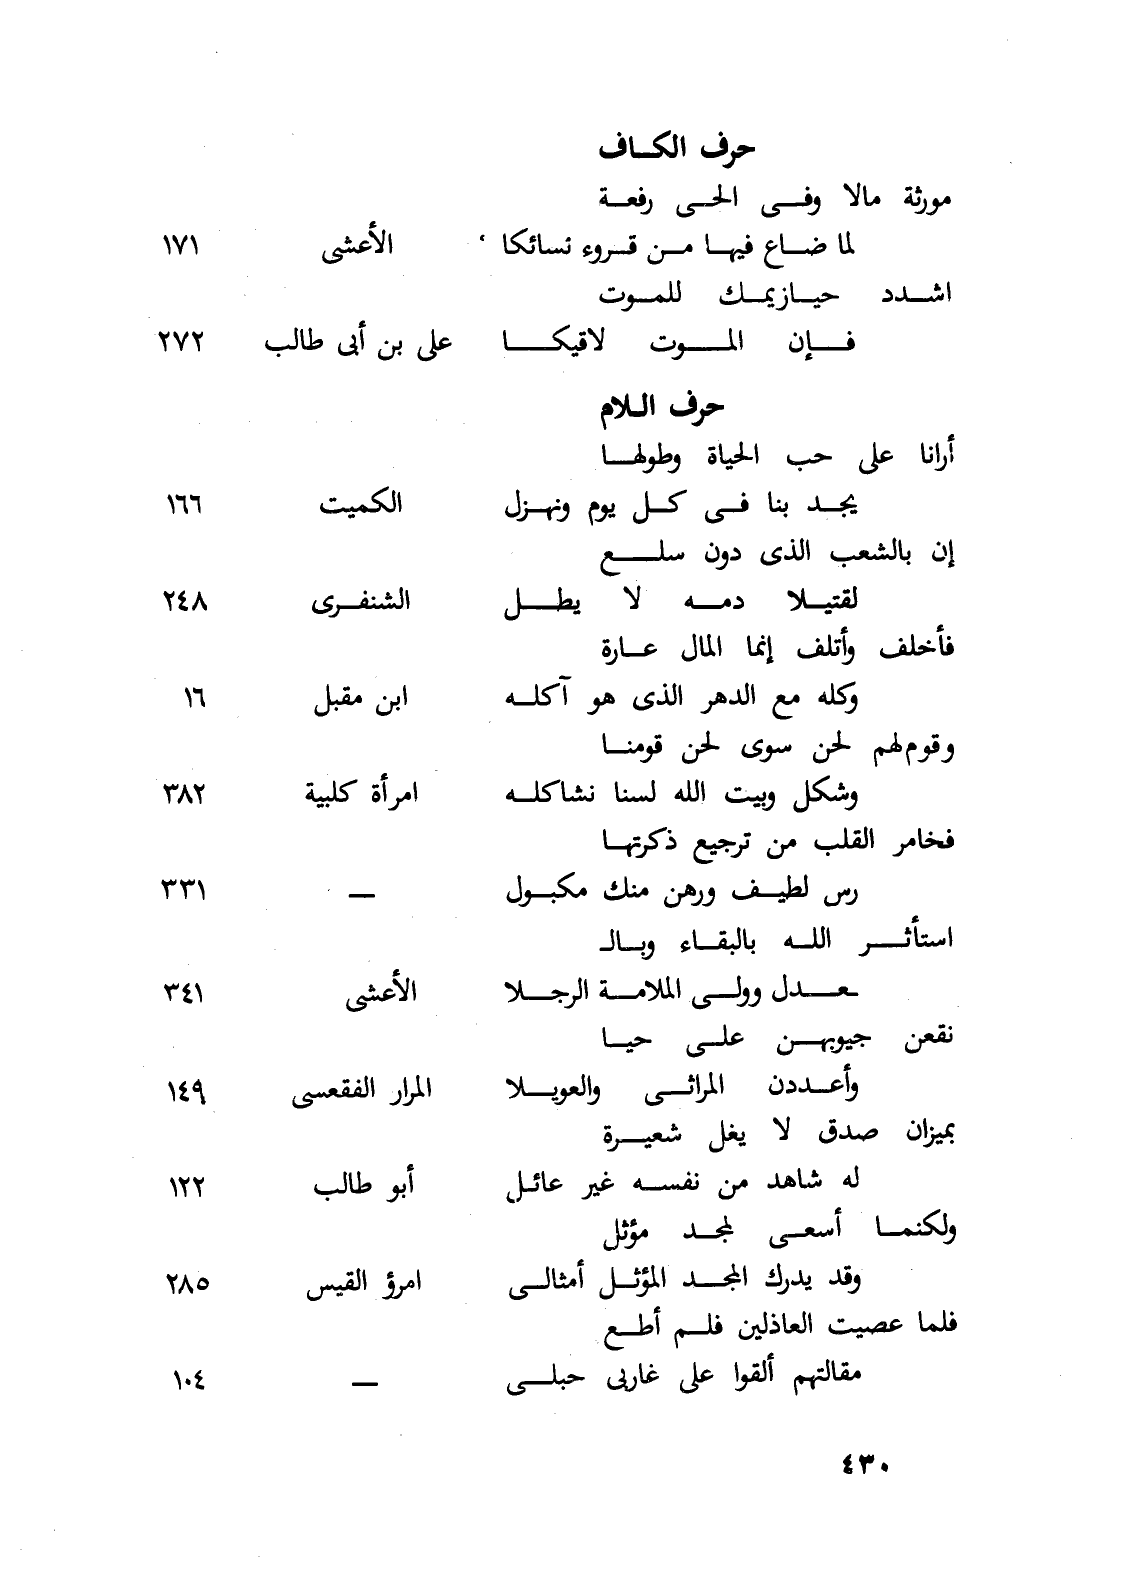 حرف الكاف
مورثة مالا وفى الحى رفعة
لما ضاع فيها من قروء نسائكا ، الأعشى ١٧١
اشدد حيازيمك للموت
فإن الموت لاقيكا على بن أبى طالب ٢٧٢
حرف اللام
أرانا على حب الحياة وطولها
يجد بنا فى كل يوم ونهزل الكميت ١٦٦
إن بالشعب الذى دون سلع
لقتيلا دمه لا يطل الشنفرى ٢٤٨
فأخلف وأتلف إنما المال عارة
وكله مع الدهر الذى هو آكله ابن مقبل ١٦
وقوم لهم لحن سوى لحن قومنا
وشكل وبيت الله لسنا نشاكله امرأة كلبية ٣٨٢
فخامر القلب من ترجيع ذكرتها
رس لطيف ورهن منك مكبول — ٣٣١
استأثر الله بالبقاء وبالـ
ـعدل وولى الملامة الرجلا الأعشى ٣٤١
نقعن جيوبهن على حيا
وأعددن المراثى والعويلا المرار الفقعسى ١٤٩
بميزان صدق لا يغل شعيرة
له شاهد من نفسه غير عائل أبو طالب ١٢٢
ولكنما أسعى لمجد مؤثل
وقد يدرك المجد المؤثل أمثالى امرؤ القيس ٢٨٥
فلما عصيت العاذلين فلم أطع
مقالتهم ألقوا على غاربى حبلى — ١٠٤
٤٣٠